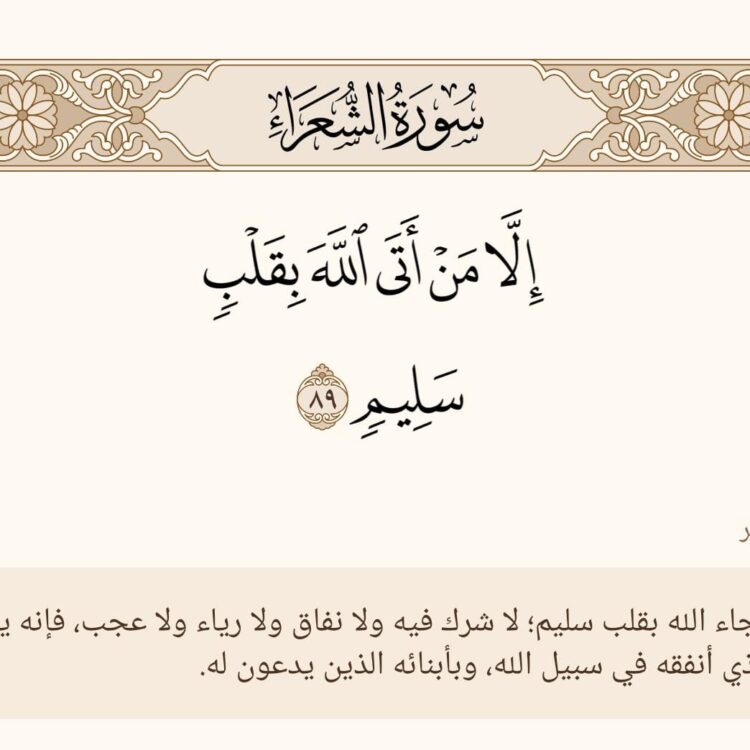 سُورَةُ الشُّعَرَاءِ
إِلَّا مَنْ أَتَى ٱللَّهَ بِقَلْبٍ
سَلِيمٍ ٨٩
جاء الله بقلب سليم؛ لا شرك فيه ولا نفاق ولا رياء ولا عجب، فإنه
أنفقه في سبيل الله، وبأبنائه الذين يدعون له.